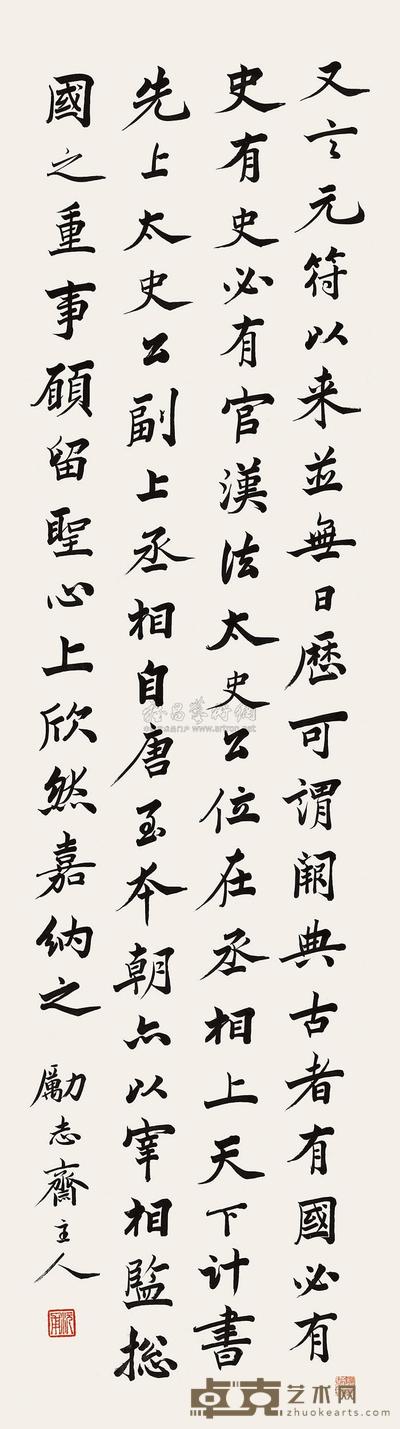 又言元符以来並無日曆可謂闕典古者有國必有
史有史必有官漢法太史公位在丞相上天下计書
先上太史公副上丞相自唐至本朝亦以宰相監総
國之重事願留聖心上欣然嘉纳之
勵志齋主人
卓克艺术网
zhuokearts.com